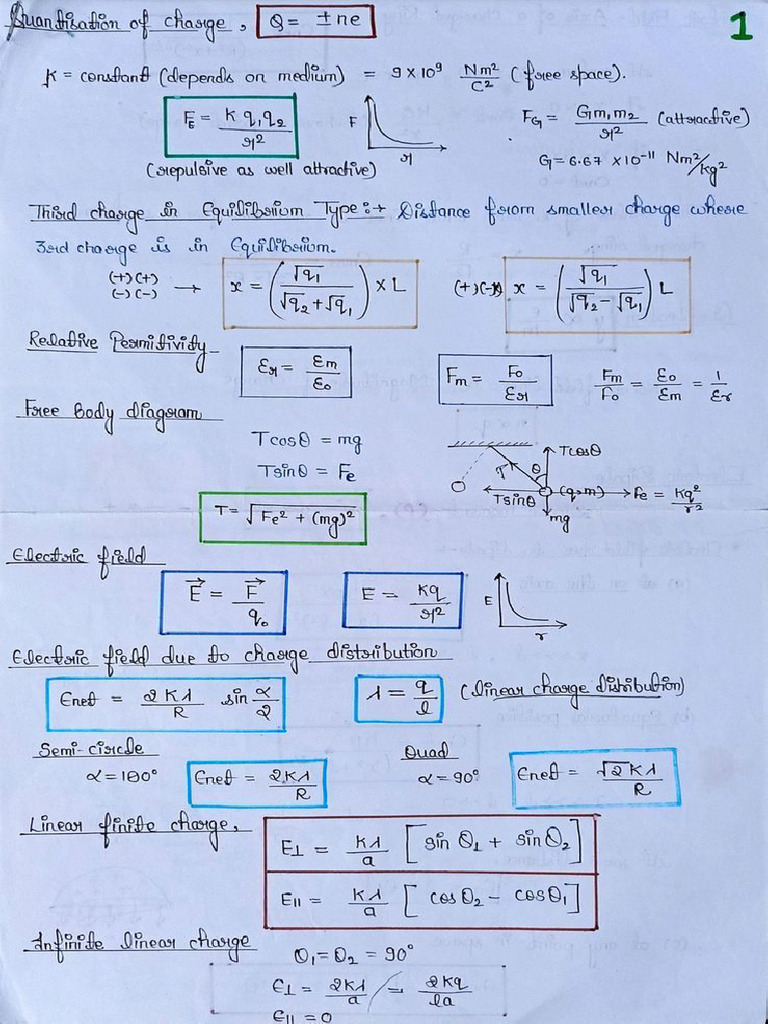 Quantisation of charge, Q = ±ne
1
K = constant (depends on medium) = 9×10⁹ Nm²/C² (free space).
F_E = K q₁q₂/r² F r F_G = Gm₁m₂/r² (attractive)
(repulsive as well attractive) G = 6.67 ×10⁻¹¹ Nm²/kg²
Third charge in Equilibrium Type:→ Distance from smaller charge where
3rd charge is in Equilibrium.
(+)(+) (-)(-) → x = (√q₁/(√q₂+√q₁)) × L (+)(-) x = (√q₁/(√q₂-√q₁)) L
Relative Permitivity- Ɛr = Ɛm/Ɛ₀ Fm = F₀/Ɛr Fm/F₀ = Ɛ₀/Ɛm = 1/Ɛr
Free Body diagram
Tcosθ = mg
Tsinθ = Fe
T = √(Fe² + (mg)²)
Tcosθ
T θ
Tsinθ (q,m) Fe = Kq²/r²
mg
Electric field
E⃗ = F⃗/q₀ E = Kq/r² E r
Electric field due to charge distribution
Enet = 2Kλ/R sin α/2 λ = q/l (linear charge distribution)
Semi-circle Quad
α = 180° Enet = 2Kλ/R α = 90° Enet = √2Kλ/R
Linear finite charge,
E⊥ = Kλ/a [sinθ₁ + sinθ₂]
E∥ = Kλ/a [cosθ₂ - cosθ₁]
Infinite linear charge θ₁ = θ₂ = 90°
E⊥ = 2Kλ/a → 2Kq/la
E∥ = 0